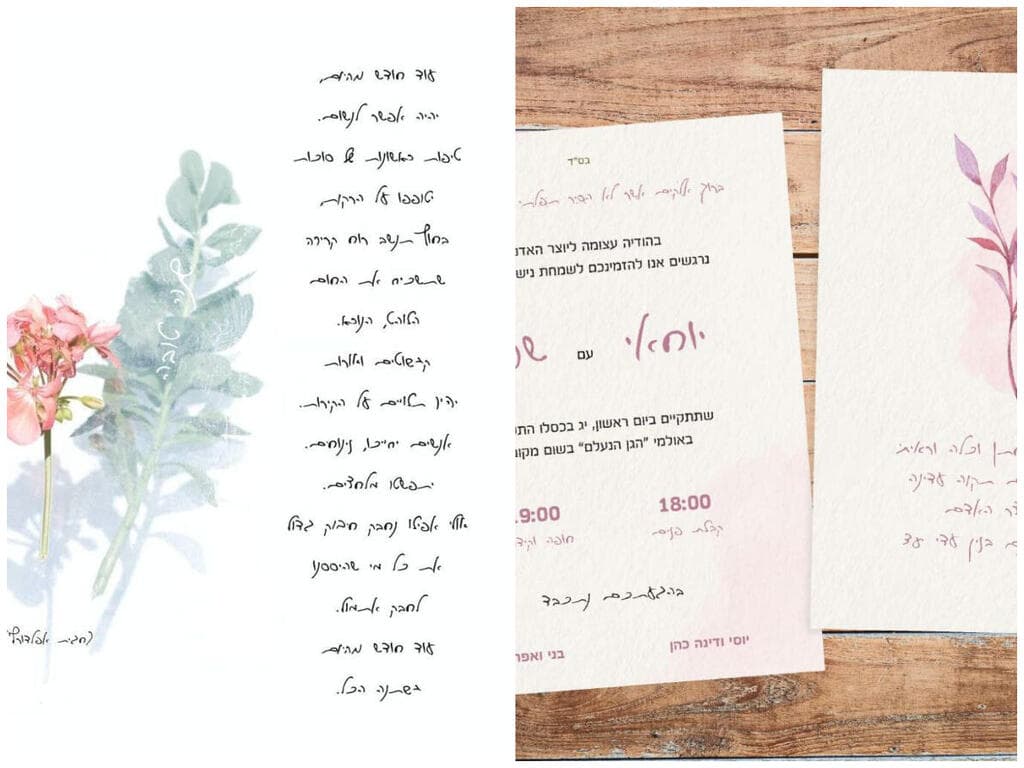 עוד חודש מהיום
יהיה אפשר לנשום.
טיפות ראשונות של סוכות
יטופפו על הרקות
בחוץ תנשב רוח קרירה
שתשכיח את החום
הלוהט, הנורא.
קישוטים ואורות
יהיו תלויים על הקירות.
אנשים יחייכו, נינוחים.
יתפשטו מלחצים.
אולי אפילו נחבק חיבוק גדול
את כל מי שהיססנו
לחבק אתמול.
עוד חודש מהיום
ישתנה הכל.
שנה טובה
בס"ד
ברוך אלוקים אשר לא הסיר תפלתי
בהודיה עצומה ליוצר האדם
נרגשים אנו להזמינכם לשמחת
יוחאי עם
שתתקיים ביום ראשון, יג בכסלו
באולמי "הגן הנעלם" בשום מקום
18:00 19:00
קבלת פנים חופה
בהגעתכם נתכבד
יוסי ודינה כהן בני
וכלה וראית
תקוה עדינה
האדם
בנין עדי עד